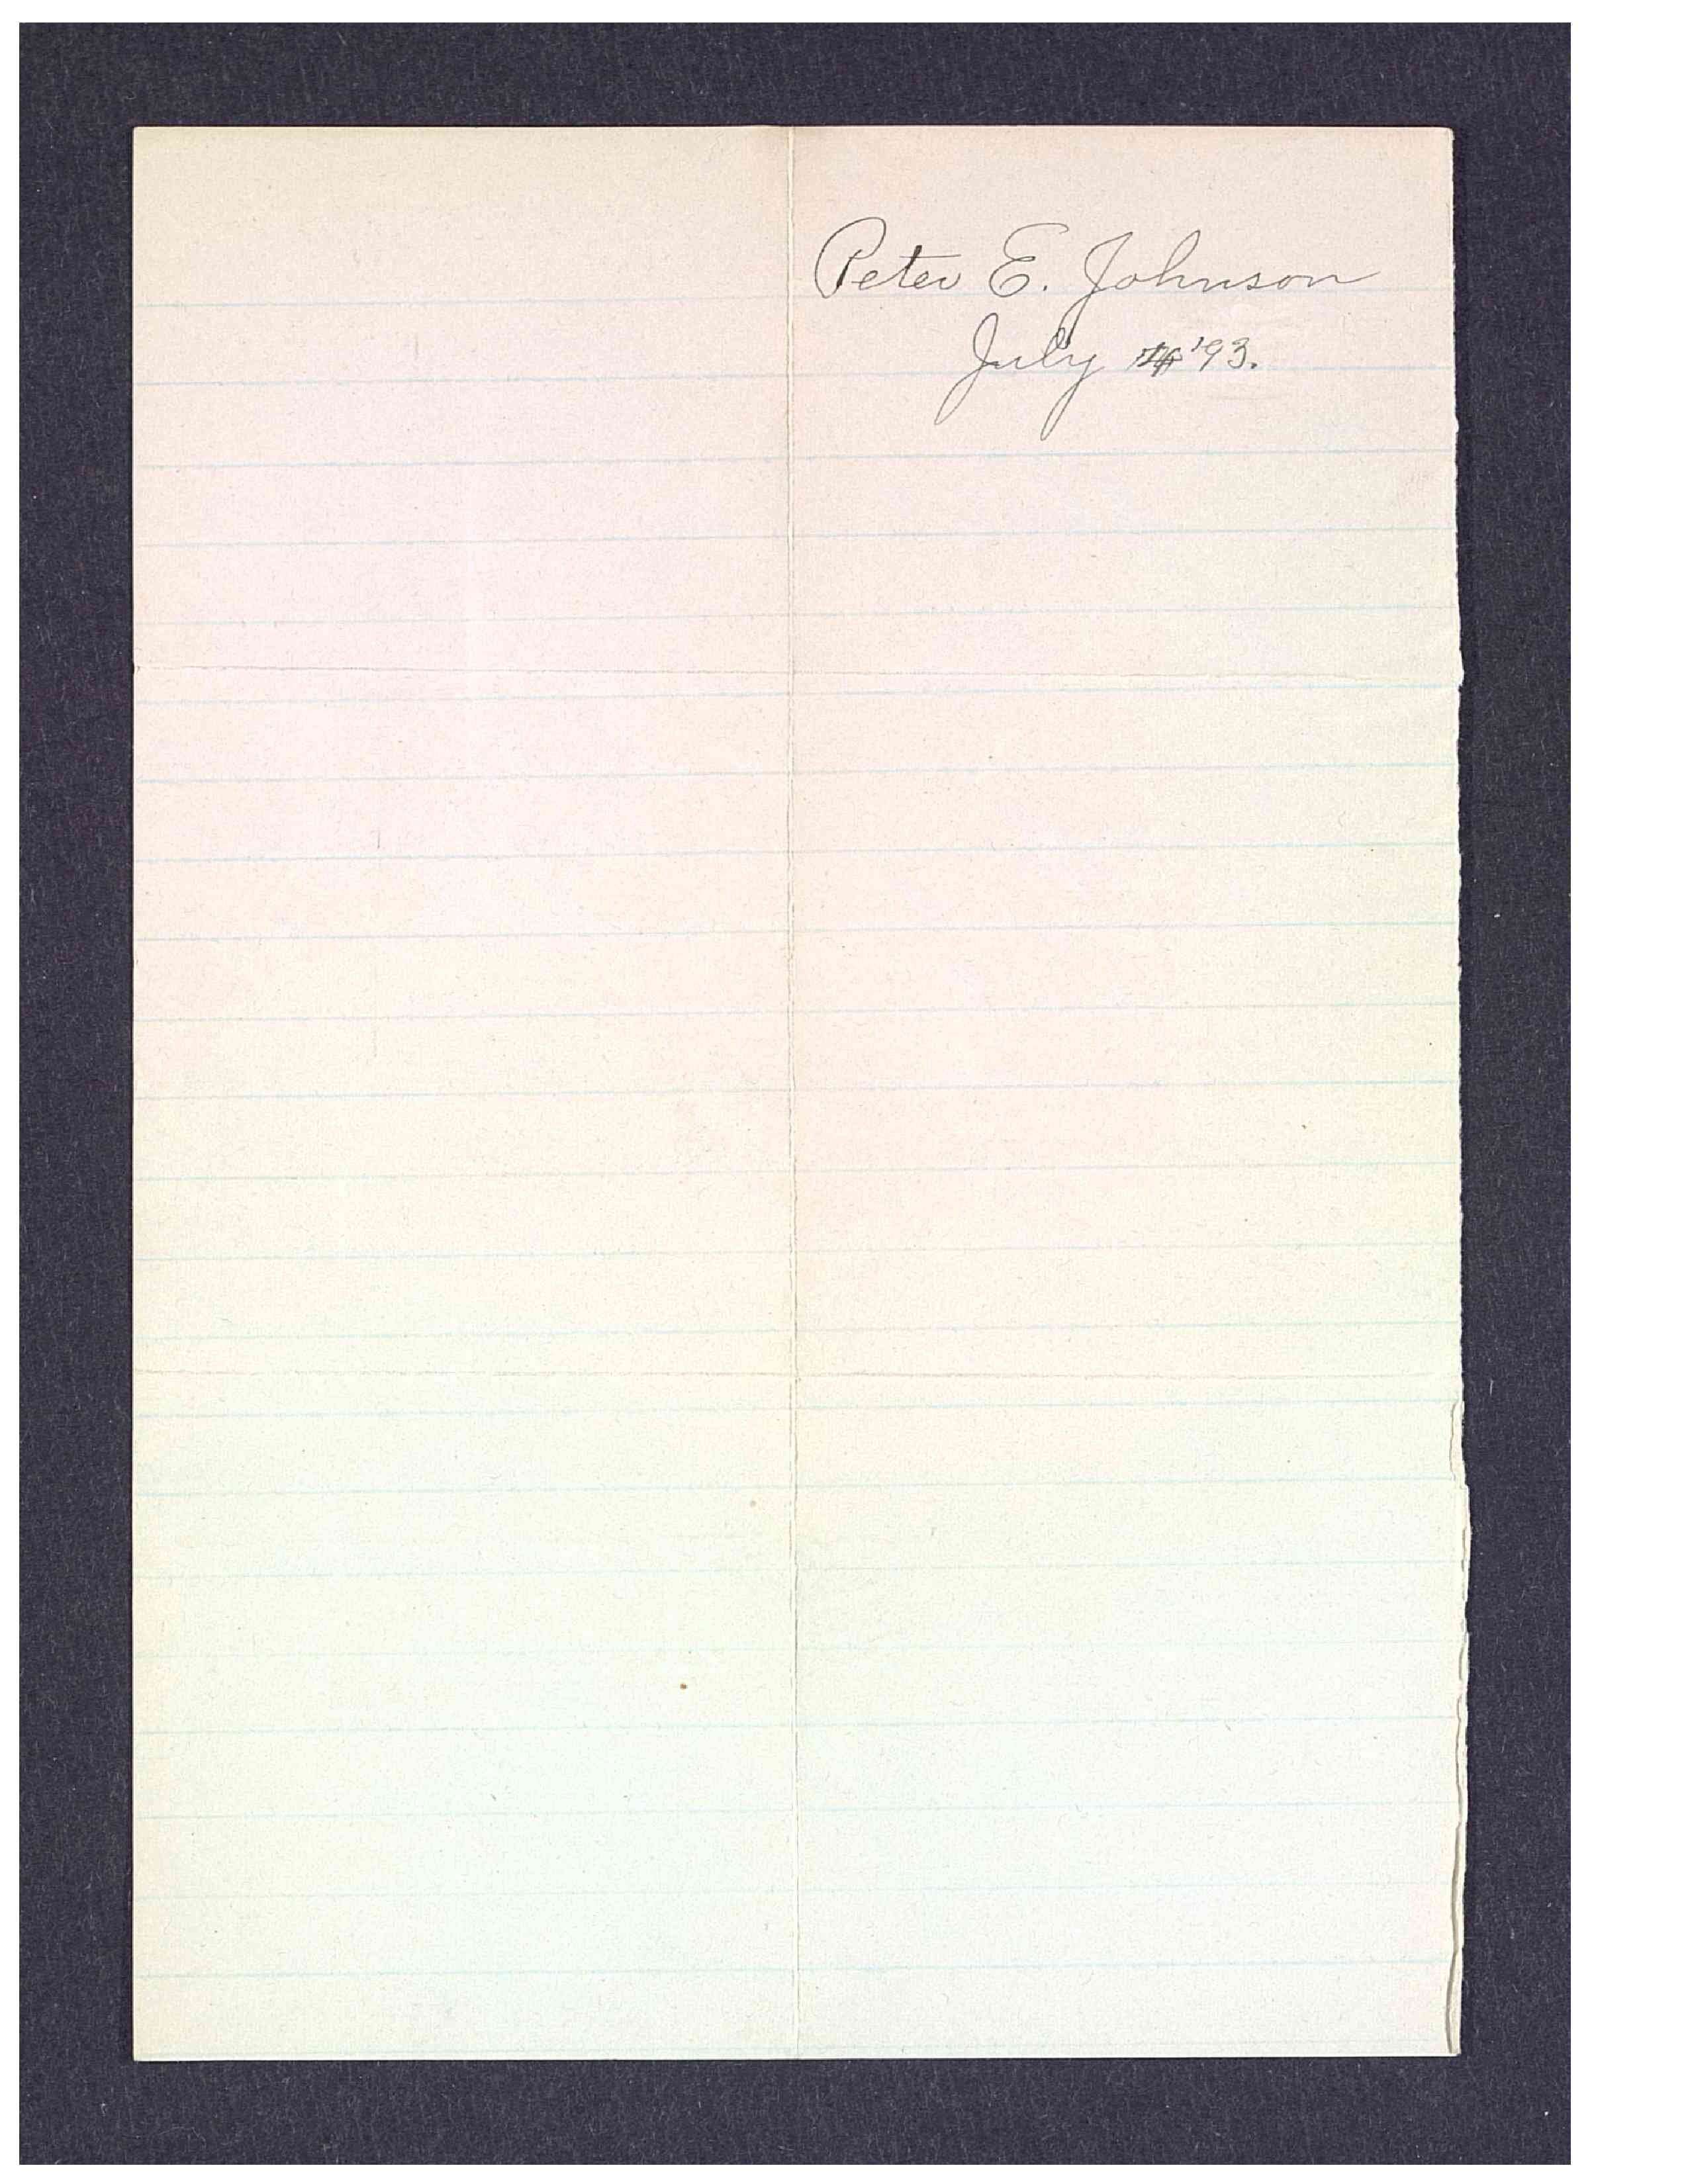 Peter E. Johnson
July '93.